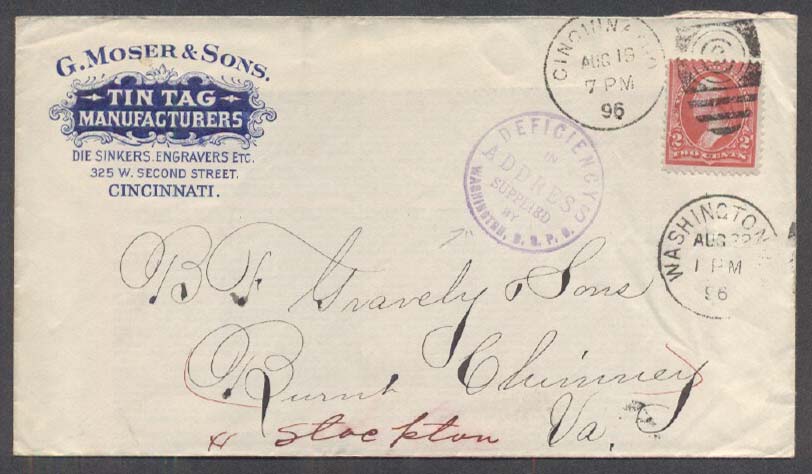 G. MOSER & SONS.
TIN TAG
MANUFACTURERS
DIE SINKERS, ENGRAVERS ETC.
325 W. SECOND STREET.
CINCINNATI.
CINCINNATI, O
AUG 19
7 PM
96
2 2
TWO CENTS
DEFICIENCY
IN
ADDRESS
SUPPLIED
BY
WASHINGTON,
WASHINGTON
AUG
1 PM
96
B F Gravely & Sons
Burnt Chimney
Stockton Va,